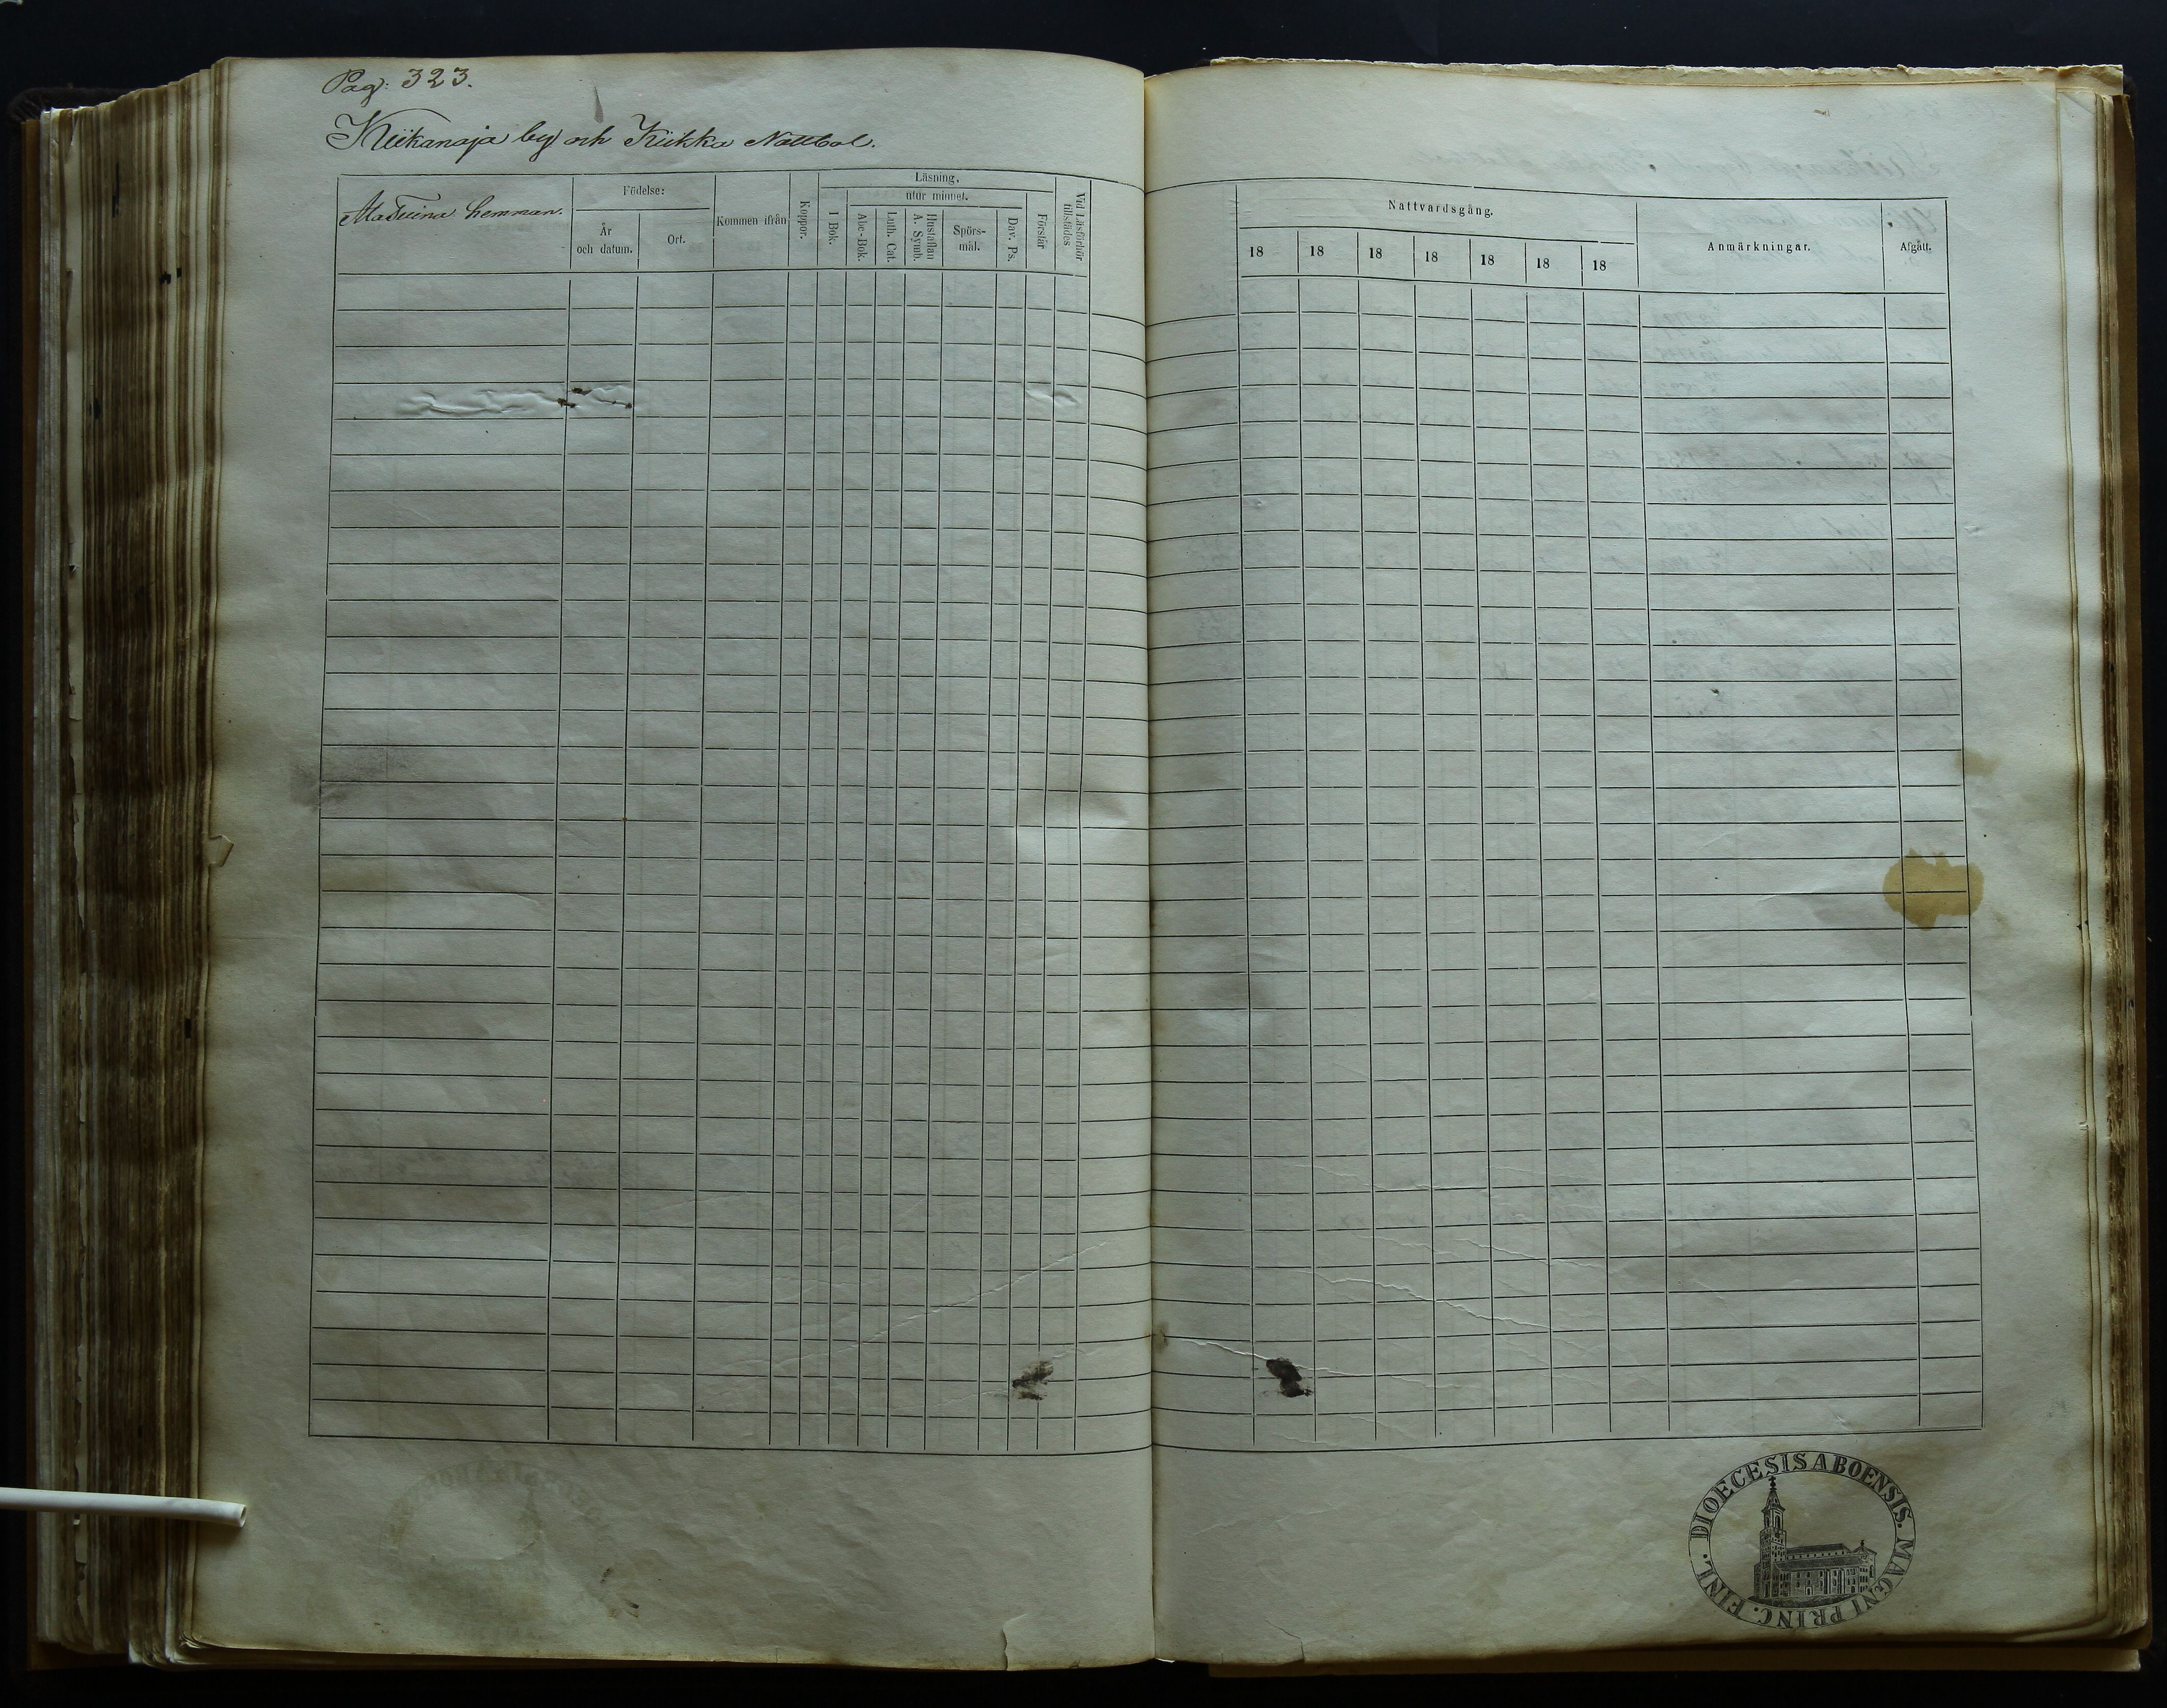 Pag: 323.
Kiikanoja by och Kiikka Nattbol.
Mattuina hemman.
Födelse:
År
och datum.
Ort.
Kommen ifrån
Koppor.
Läsning.
utur minnet.
I Bok.
Abc-Bok.
Luth. Cat.
Hustaflan
A. Symb.
Spörs-
mål.
Dav. Ps.
Förstår
Vid Läsförhör
tillstädes
Nattvardsgång.
18 18 18 18 18 18 18
Anmärkningar.
Afgått.
DIOECESIS ABOENSIS. MAGNI PRINC. FINL.